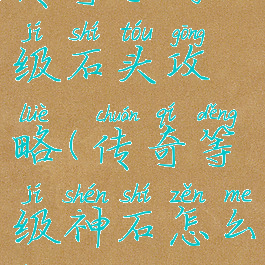 jí shí tóu gōng
级石头攻
lüè chuán qí děng
略(传奇等
jí shén shí zěn me
级神石怎么